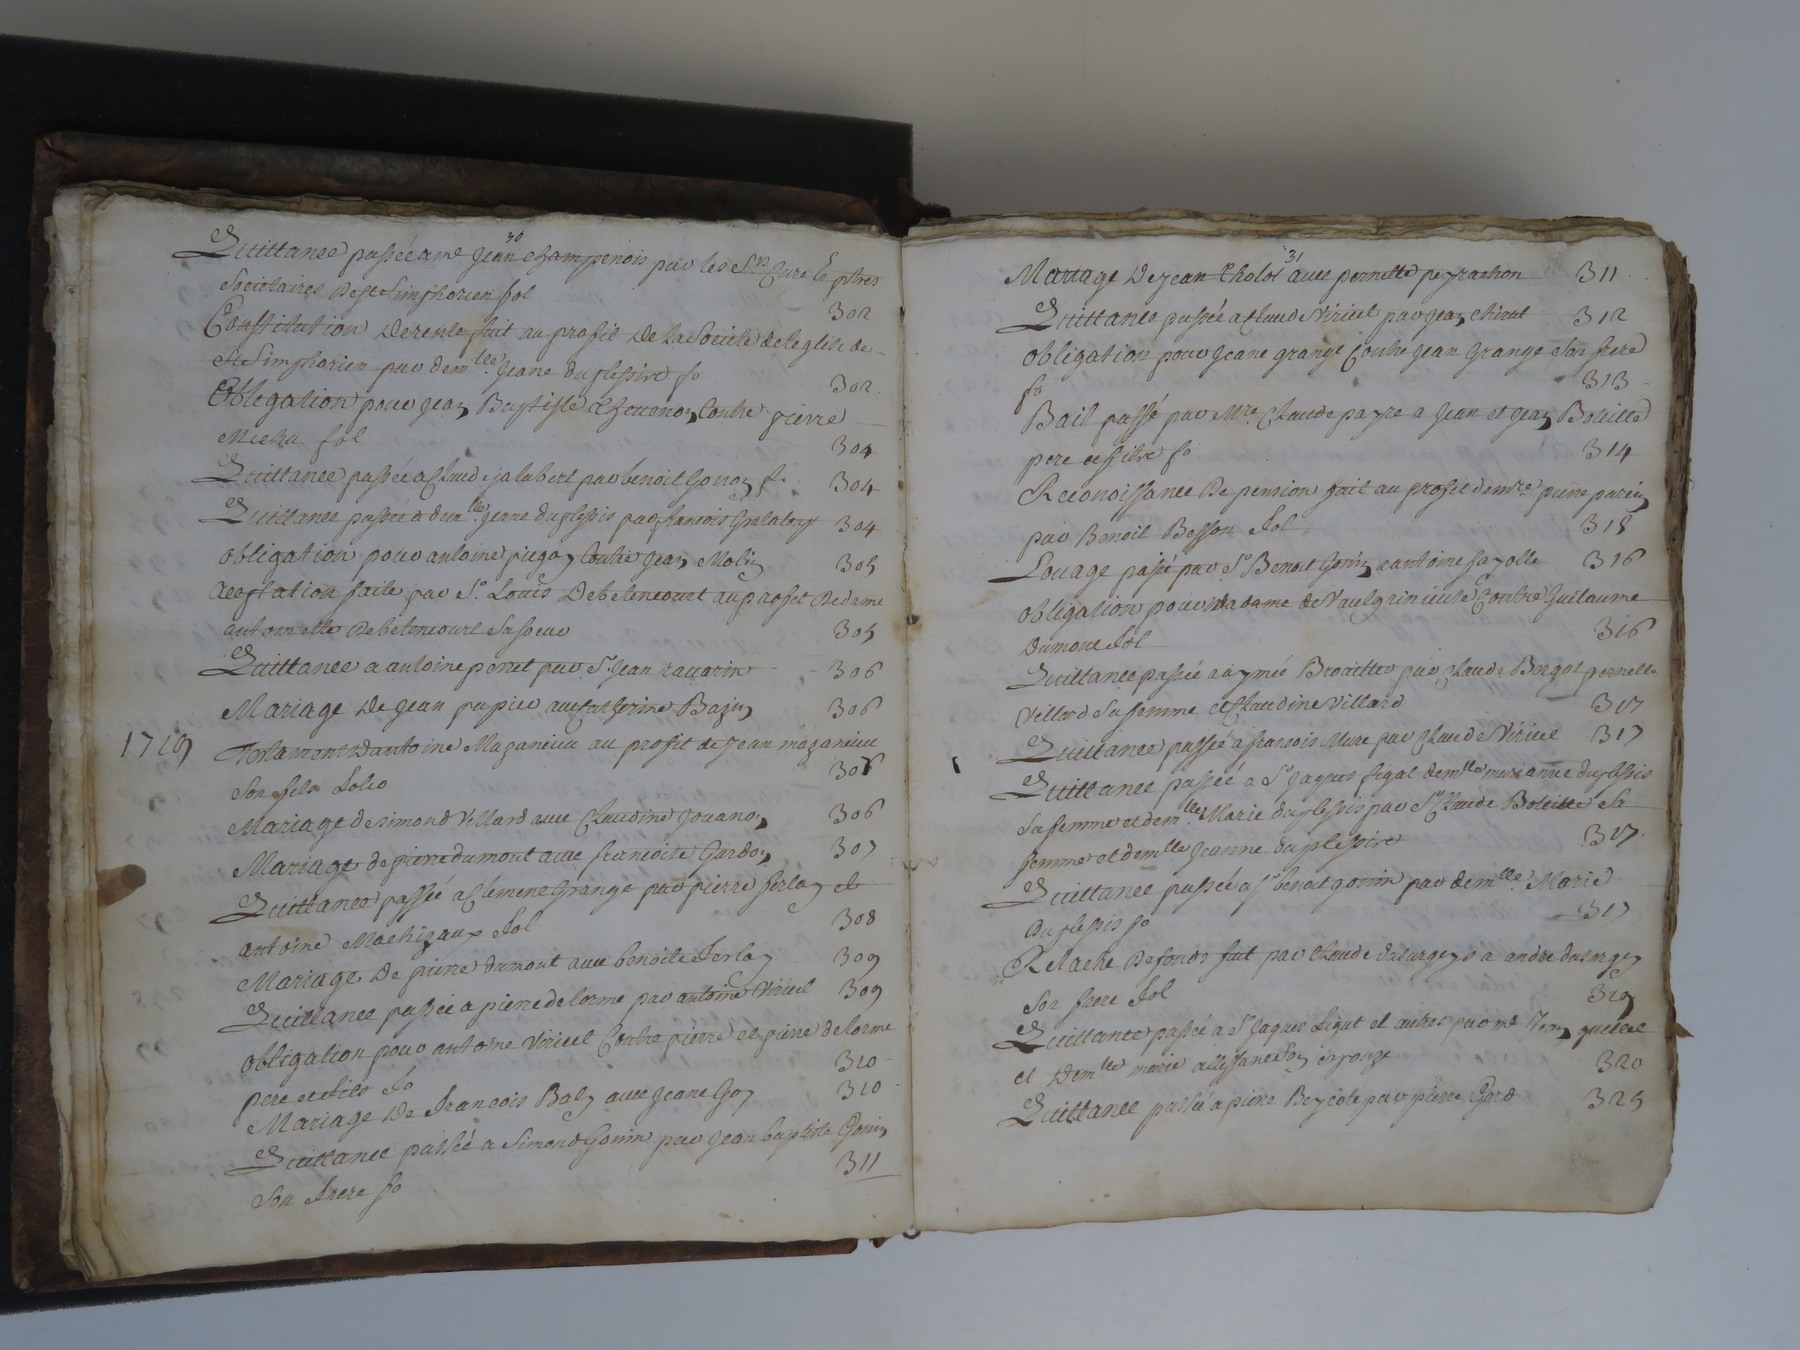 30
Quittance passée a me Jean champenois par les Srs Curé & ptres
Societaires de St Simphorien fol 302
Constitution de rente fait au profit de la Societé de leglise de
St Simphorien par demlle Jeane duplessire fo 302
Obligation pour Jean Baptiste Contre pierre
fol 304
Quittance passée a Claude jalabert par benoit Gonon fo 304
Quittance passée a demlle Jeane duplessis par francois 304
obligation pour antoine Contre Jean Molin 305
aceptation faite par Sr Louis Debetencourt au profit de dame
antoinette Debetencourt Sa soeur 305
Quittance a antoine peret par Sr Jean ravarin 306
Mariage de Jean papier avec Catherine Bazin 306
1719 Testament dantoine Mazanieu au profit de Jean mazanieu
Son fils folio 306
Mariage de simond Villard avec Claudine Jouanon 306
Mariage de pierre dumont avec francoise Gardon 307
Quittance passée a Clemene Grange par pierre ferlay et
antoine Machizaux fol 308
Mariage de pierre dumont avec benoite ferlay 309
Quittance passée a pierre delorme par antoine Viricel 309
obligation pour antoine Viricel Contre pierre et pierre delorme
pere et fils fo 310
Mariage de francois Baly avec Jeane Goy 310
Quittance passée a Simond Gonin par Jean baptiste Gonin
Son frere fo 311
31
Mariage de jean Cholot avec pernette peyrachon 311
Quittance passée a Claude Viricel par Jean chirat 312
obligation pour Jeane grange Contre Jean Grange Son frere
fo 313
Bail passé par Mre Claude payre a Jean et Jean Boutte
pere et fils fo 314
Reconoissance de pension fait au profit de mre pierre
par Benoit Besson fol 315
Louage passé par Sr Benoit Gonin a antoine fayolle 316
obligation pour Madame de Vaulgrineuse Contre Guilaume
Dumont fol 316
Quittance passée a aymée par Claude Bergot pernette
Villard Sa femme et Claudine Villard 317
Quittance passée a francois Mure par Claude Viricel 317
Quittance passée a Sr Jaques figat demlle marianne duplessis
Sa femme et demlle Marie duplessis par Sr Claude Sa
femme et demlle Jeanne duplessire 317
Quittance passée a Sr benoit gonin par demlle Marie
duplessis fo 317
Relache de fonds fait par Claude dasurgeys a andre dasurgey
Son frere fol 319
Quittance passée a Sr Jaques et autres par me Jean
et demlle marie Son epouze 320
Quittance passée a pierre par pierre 325